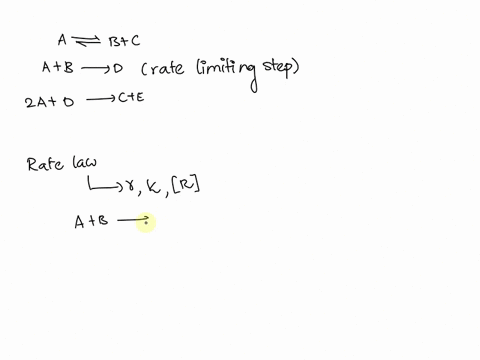 A ⇌ B+C
A+B → D (rate limiting step)
2A+D → C+E
Rate law
↳ r, k, [R]
A+B →